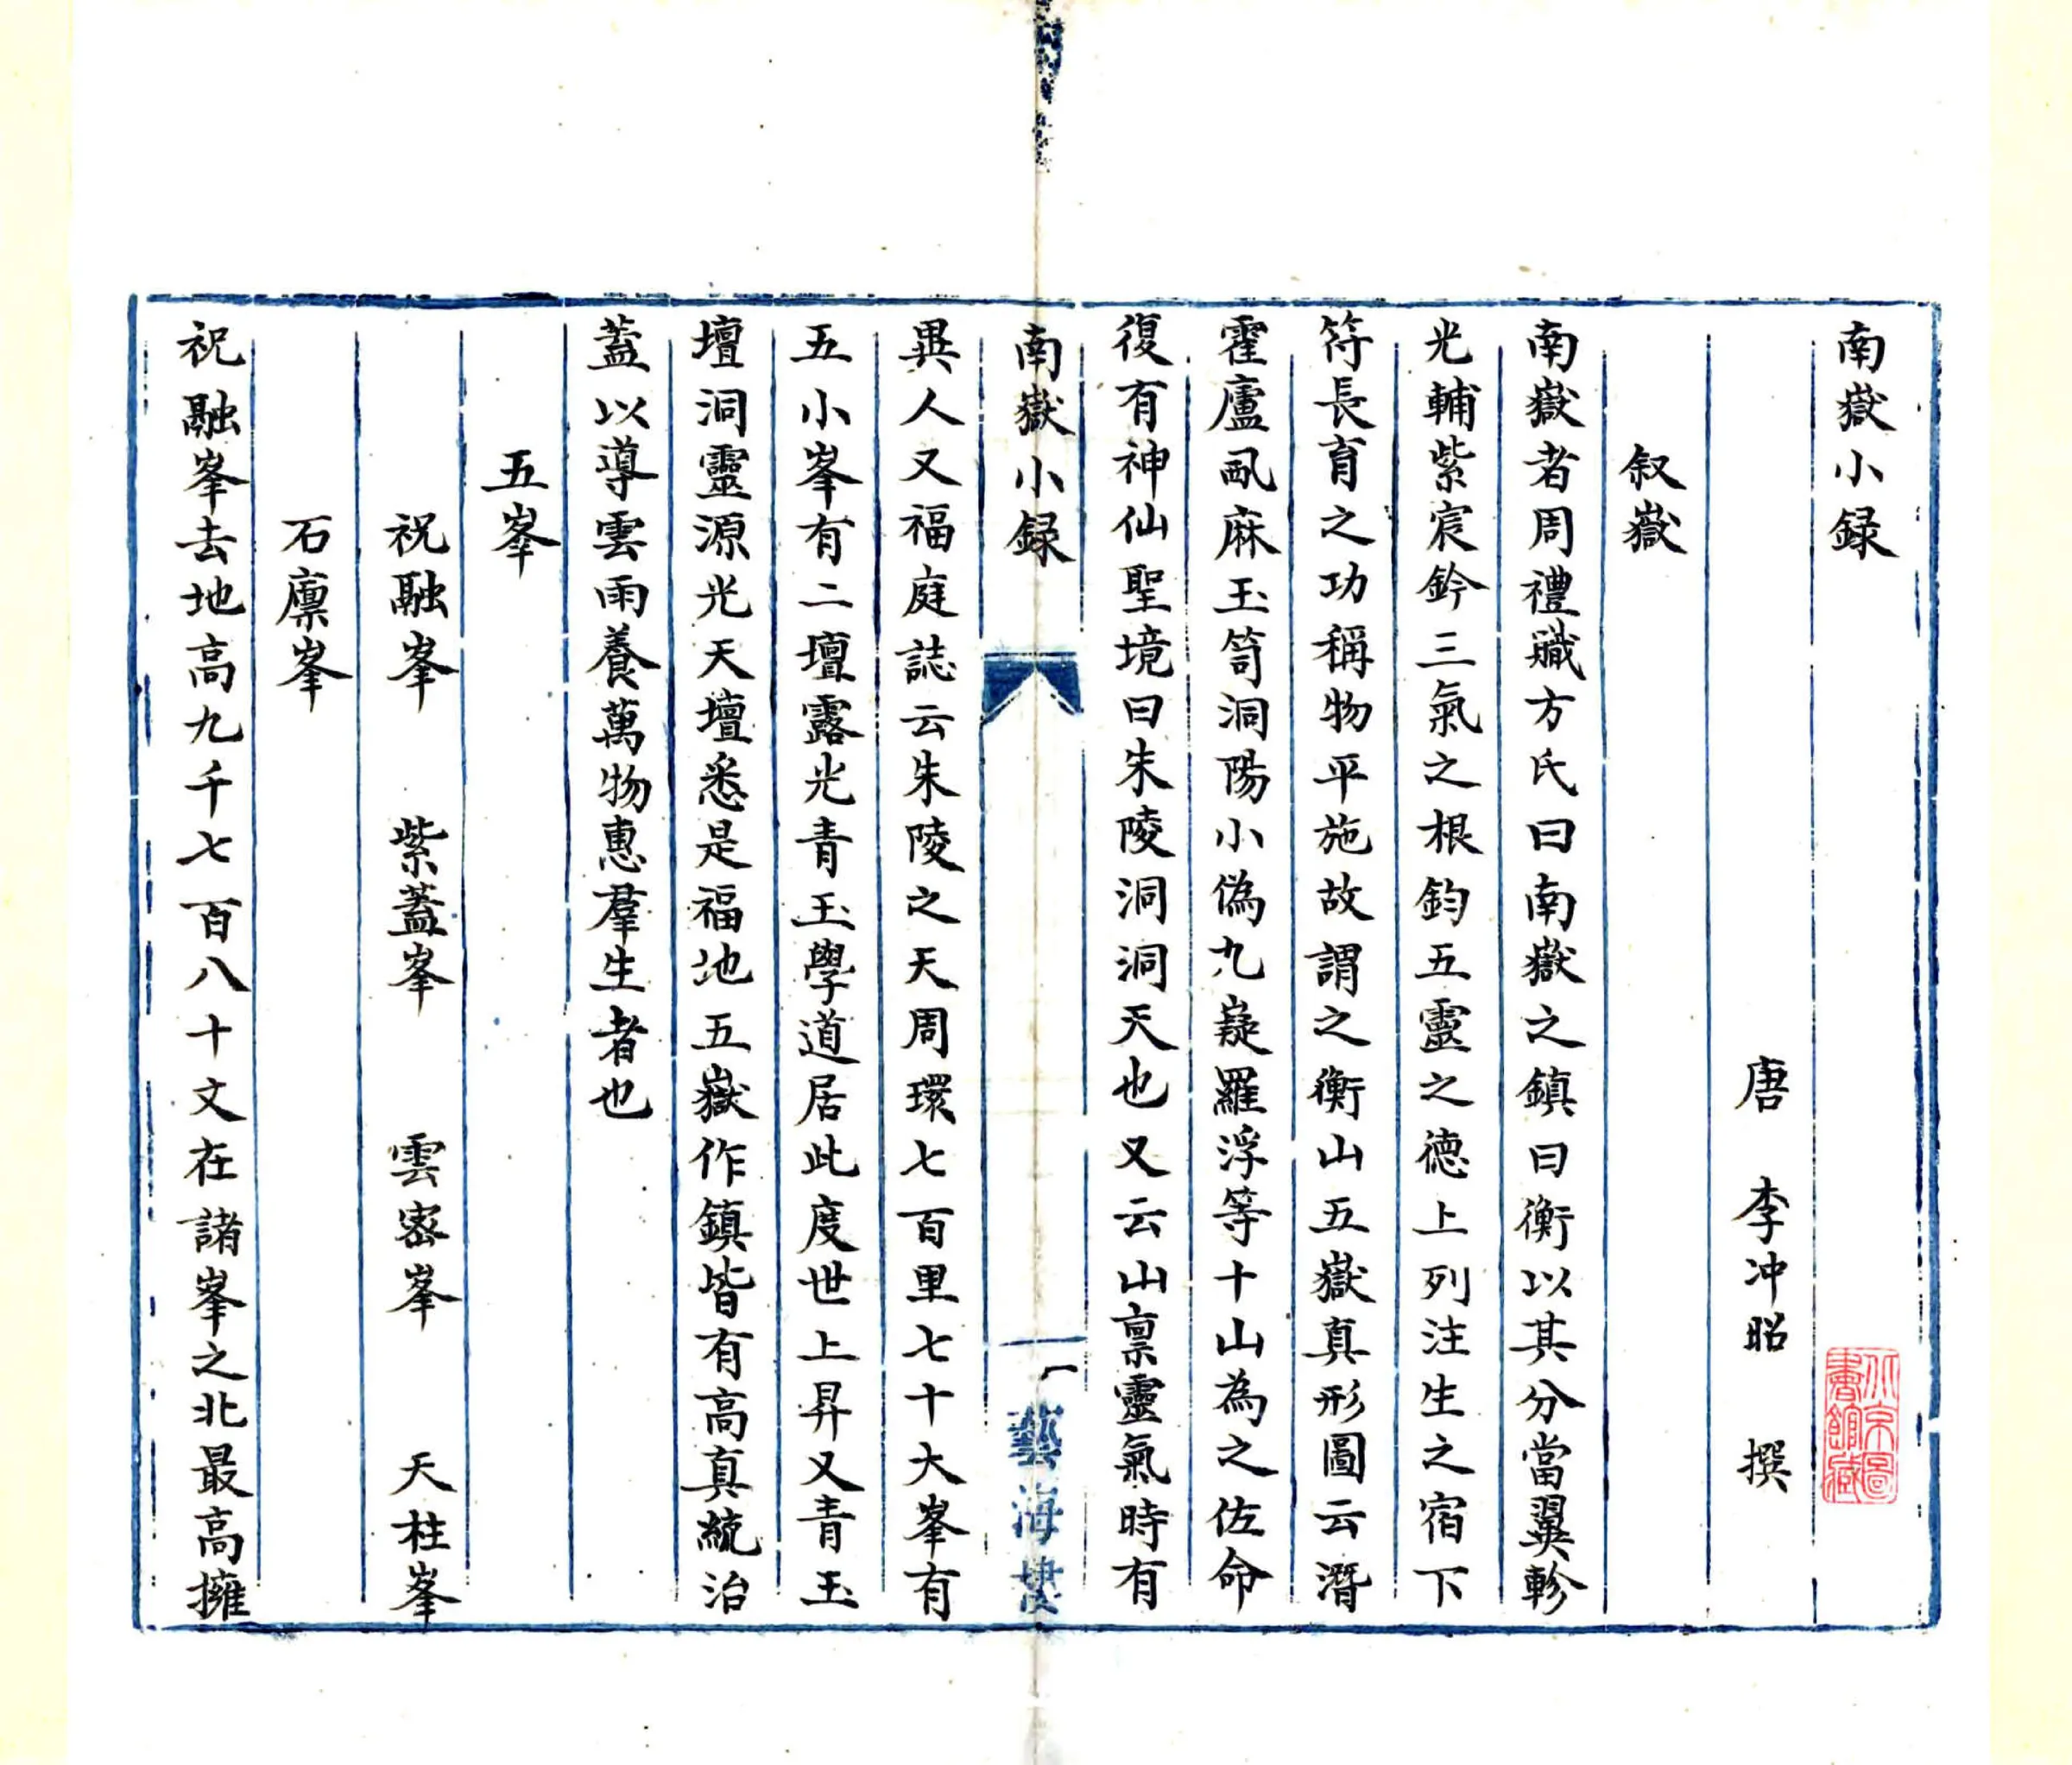 南嶽小録
唐　李冲昭　撰
叙嶽
南嶽者周禮職方氏曰南嶽之鎮曰衡以其分當翼軫
光輔紫宸鈐三氣之根鈞五靈之德上列注生之宿下
符長育之功稱物平施故謂之衡山五嶽真形圖云潛
霍廬𠙖麻玉笥洞陽小偽九嶷羅浮等十山為之佐命
復有神仙聖境曰朱陵洞洞天也又云山禀靈氣時有
南嶽小録
一
藝海樓
異人又福庭誌云朱陵之天周環七百里七十大峯有
五小峯有二壇露光青玉學道居此度世上昇又青玉
壇洞靈源光天壇悉是福地五嶽作鎮皆有高真統治
蓋以導雲雨養萬物惠羣生者也
五峯
祝融峯　紫蓋峯　雲密峯　天柱峯
石廪峯
祝融峯去地高九千七百八十文在諸峯之北最高擁
北京圖書館藏